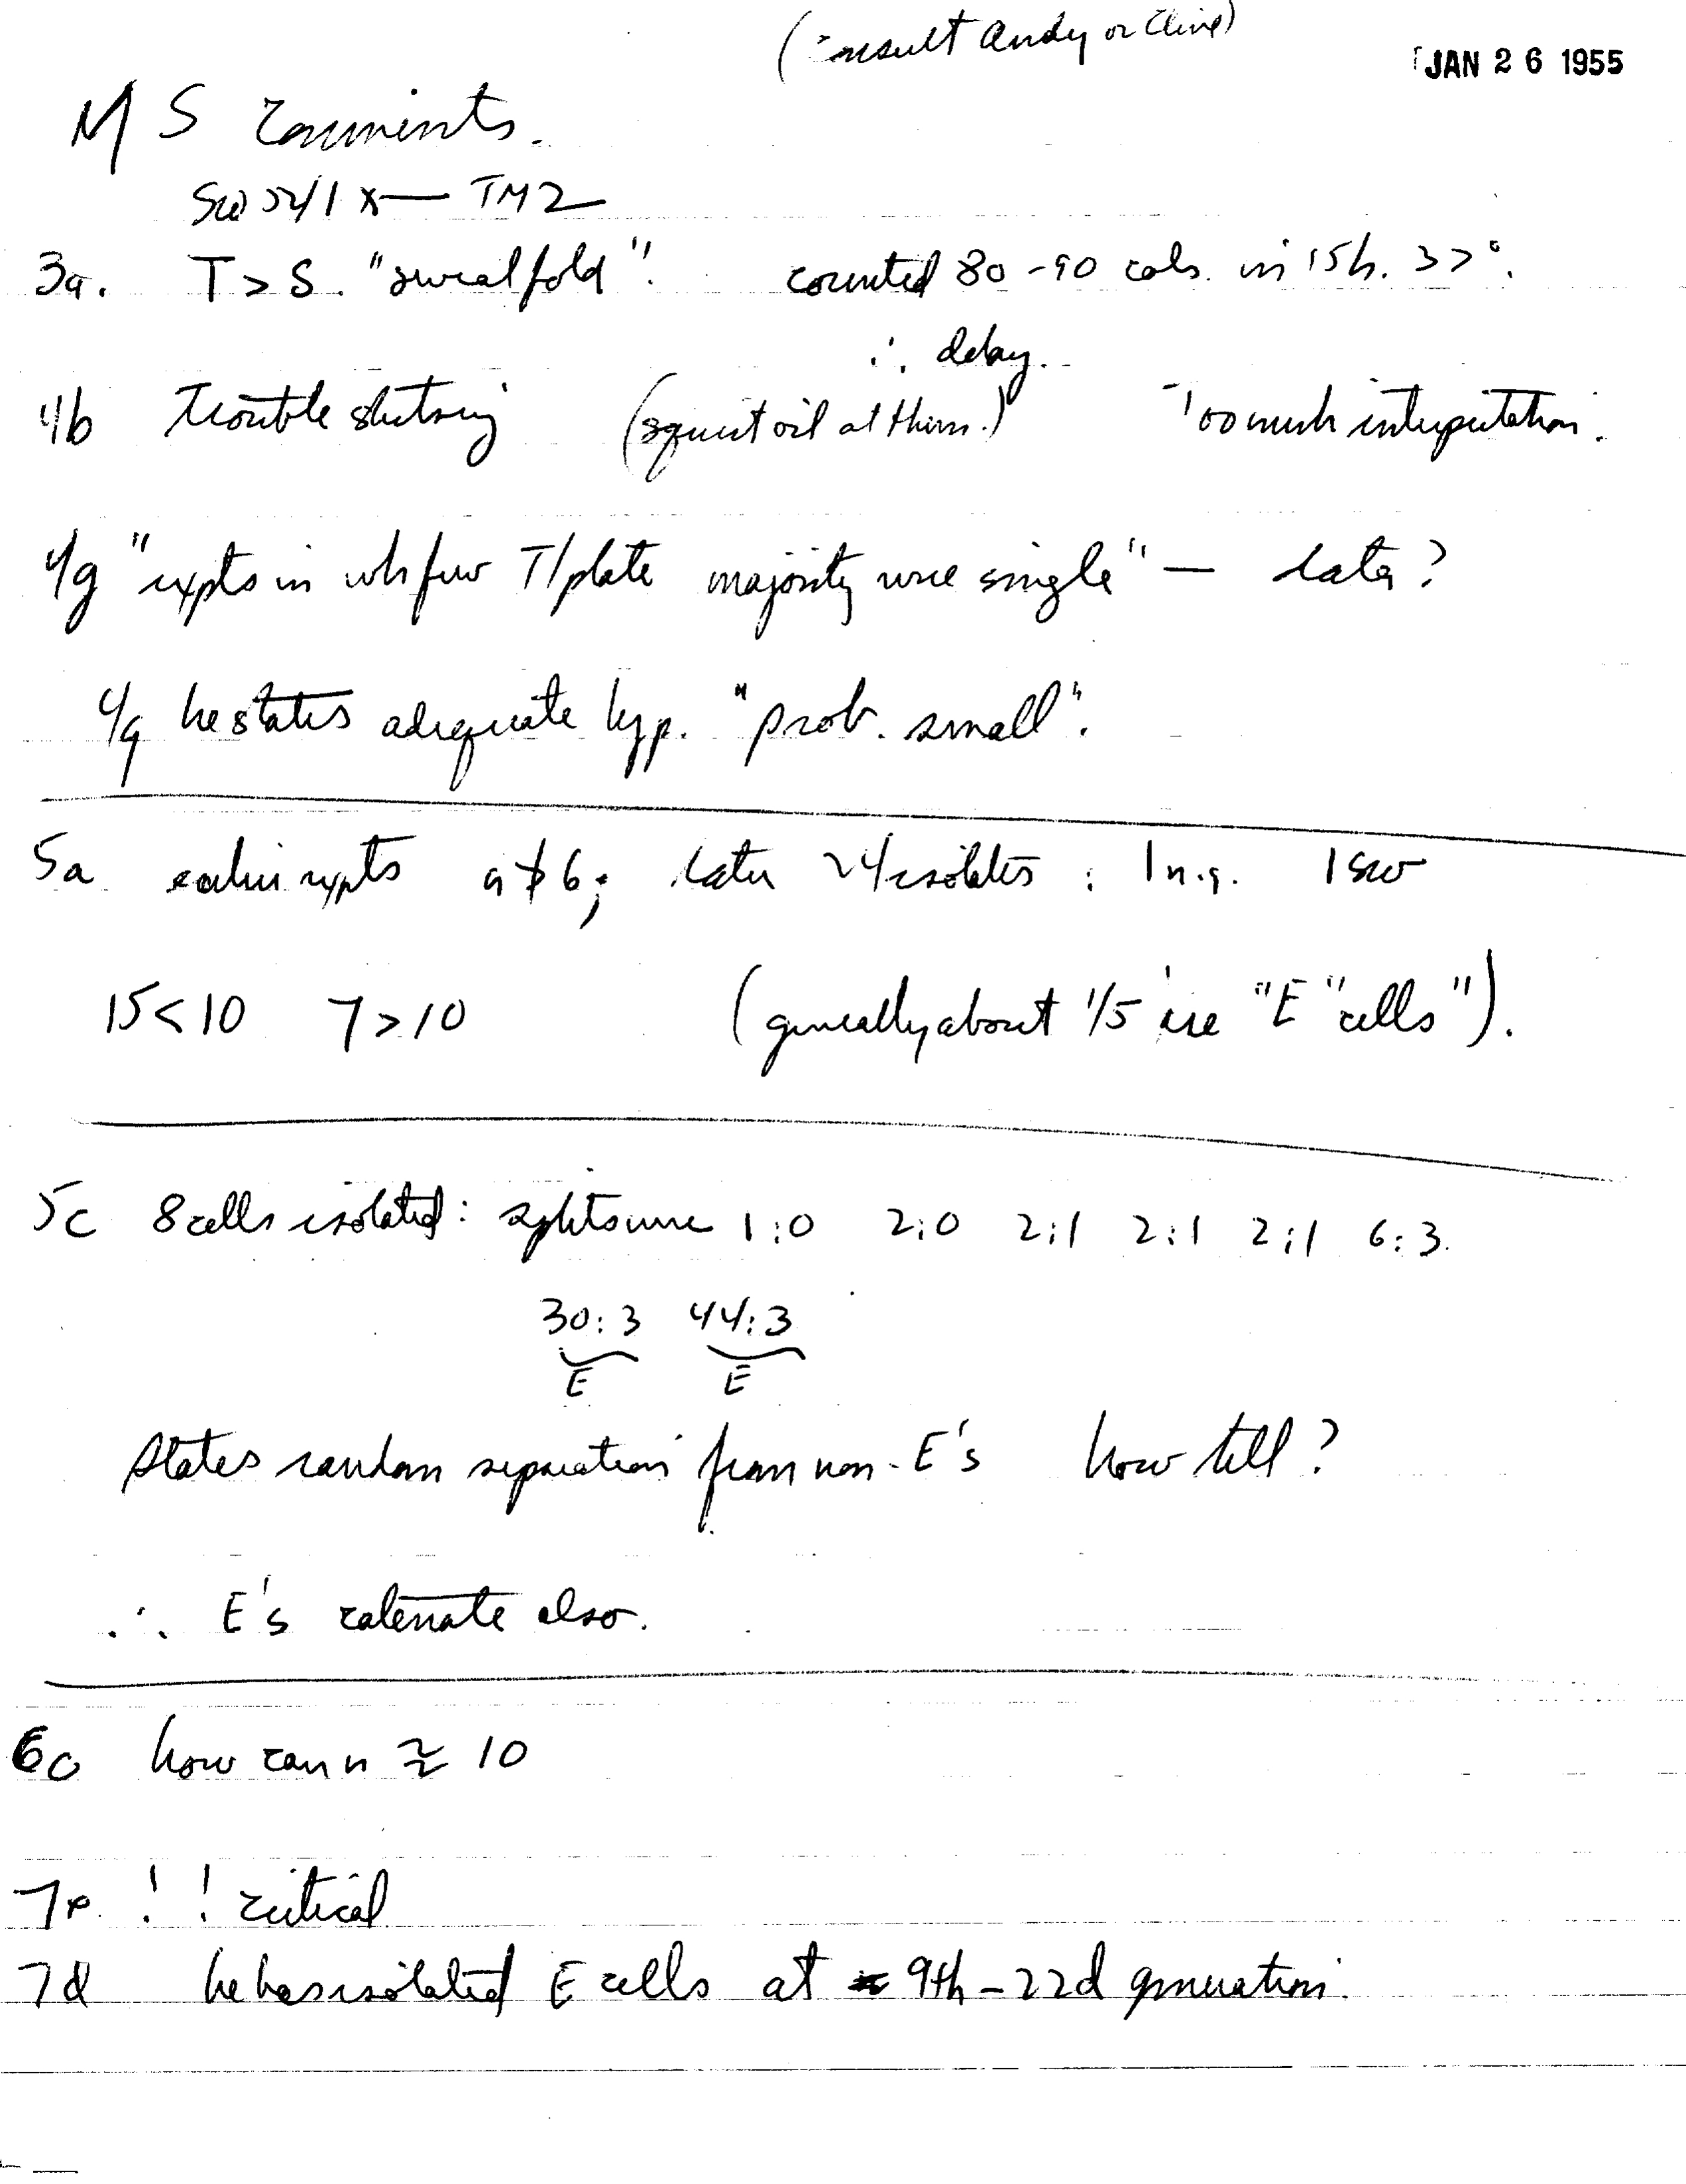 (consult Andy or Clive)
JAN 26 1955
MS comments.
SW 541 x— TM2
3a. T > S. "several fold". counted 80-90 cols. in 15h. 37°.
∴ delay.
4b Trouble shooting (squirt oil at them.) Too much interpretation.
4g "expts in wh few T/plate majority were single" — data?
4g he states adequate hyp. "prob. small".
5a earlier expts 9 6; later 24 isolates: 1 n.g. 1 sw
15<10 7>10 (generally about 1/5 are "E" cells").
5c 8 cells isolated: splits were 1:0 2:0 2:1 2:1 2:1 6:3.
30:3 44:3
E E
States random separation from non-E's how tell?
∴ E's catenate also.
6c how can n ≈ 10
7 !! critical
7d he has isolated E cells at 9th-22d generation.